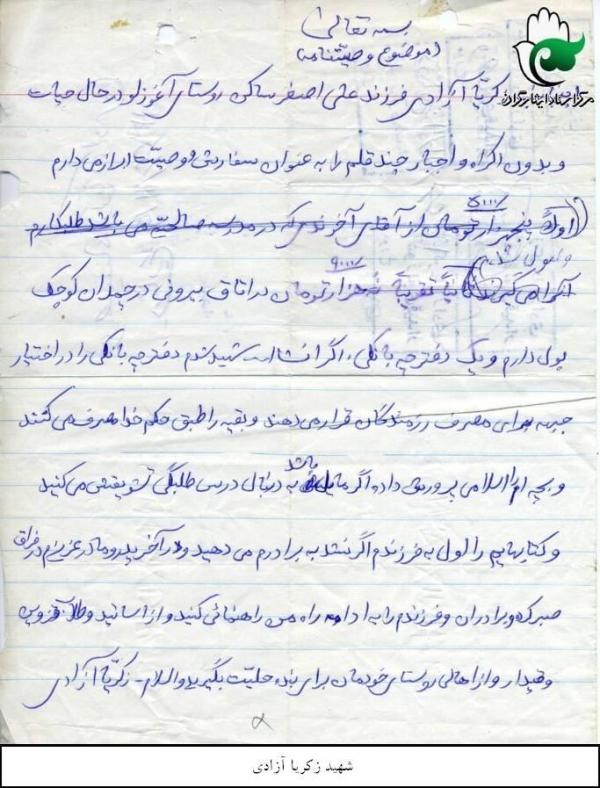 بسمه تعالی
(موضوع وصیتنامه)
مرکز اسناد ایثارگران
زکریا آزادی فرزند علی اصغر ساکن روستای آغوزلو در حال حیات
و بدون اکراه و اجبار چند قلم را به عنوان سفارش و وصیت ابراز می دارم
۵۰۰۰
(اولاً پنجهزار تومان از آقای آخوندی که در مدرسه صالحیه می باشد طلبکارم
وصول شد
۹۰۰۰
آنرا می گیرند) ثانیاً تقریباً نه هزار تومان در اتاق بیرونی در چمدان کوچک
پول دارم و یک دفترچه بانکی، اگر انشااله شهید شدم دفترچه بانکی را در اختیار
جبهه برای مصرف رزمندگان قرار می دهند و بقیه را طبق حکم خدا مصرف می کنند
و بچه ام را اسلامی پرورش داده اگر مایل باشد به دنبال درس طلبگی تشویقش می کنید
و کتابهایم را اول به فرزندم اگر نشد به برادرم می دهید و در آخر پدر و مادر عزیزم در فراق
صبر کرده و برادران و فرزندم را به ادامه راه من راهنمائی کنید و از اساتید و طلاب قزوین
و قیدار و از اهالی روستای خودمان برای بنده حلیت بگیرید والسلام - زکریا آزادی
شهید زکریا آزادی